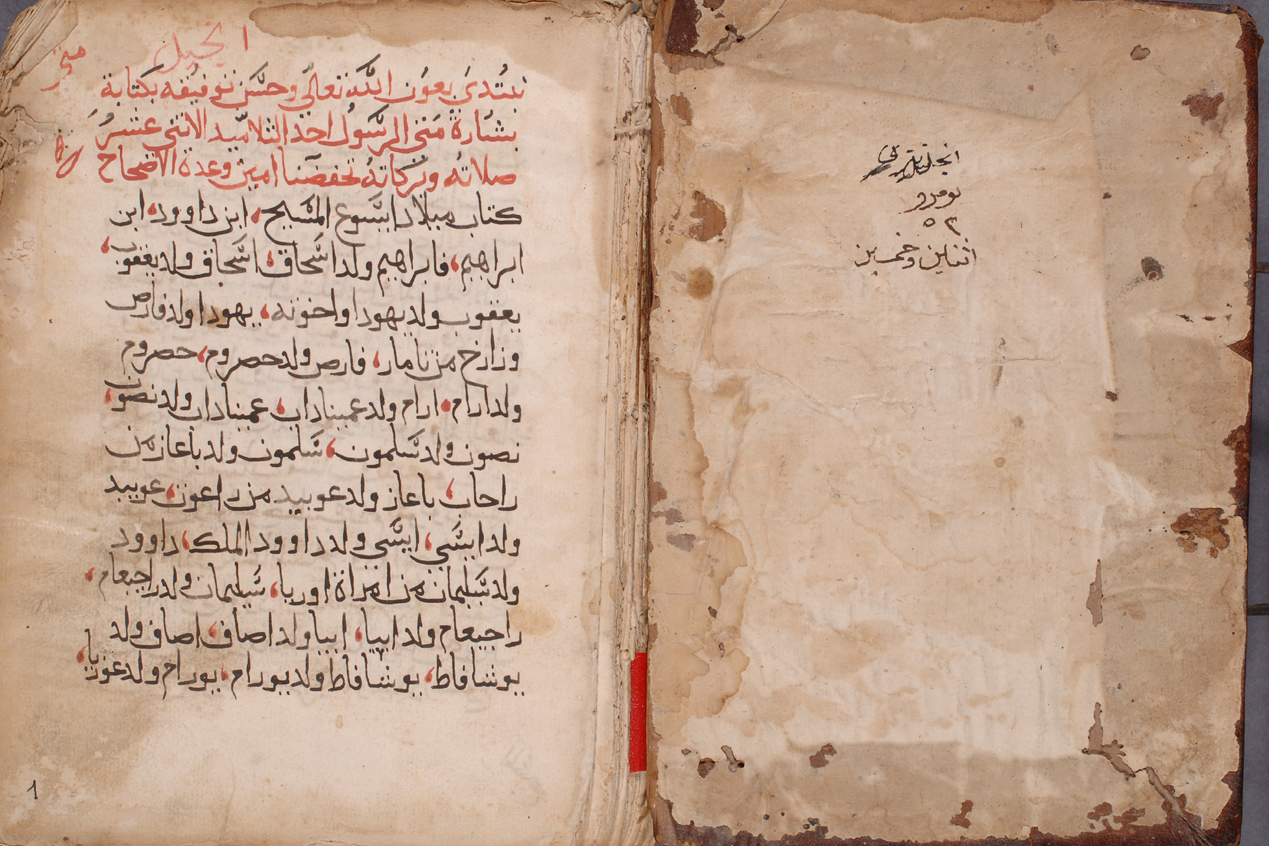 نومرو
٥٢
اثنين وخمسين
انجيل
متى
نبتدئ بعون الله تعالي وحسن توفيقه بكتابة
بشارة متى الرسول احد التلاميد الاثني عشر
صلاته وبركاته تحفضنا امين وعدة الاضحاح
كتاب ميلاد ايسوع المسيح، ابن داوود، ابن
ابراهيم، فابراهيم ولد اسحاق، اسحاق ولد يعقوب،
يعقوب ولد يهودا واخوته، يهودا ولد فارص
وزارخ من تامار، فارص ولد حصروم، حصروم
ولد ارام، ارام ولد عميناداب، عميناداب ولد نصون،
نصون ولد سلمون، سلمون ولد باعاز من
راحاب، باعاز ولد عوبيد من راعوت، عوبيد
ولد ايسي، ايسي ولد داوود الملك، داوود
ولد سليمان من امراة اوريا، سليمان ولد راجبعام،
راجبعام ولد ابيا، ابيا ولد اصاف، اصاف ولد
يوشافاط، يوشافاط ولد يورام، يورام ولد عوزيا،
١